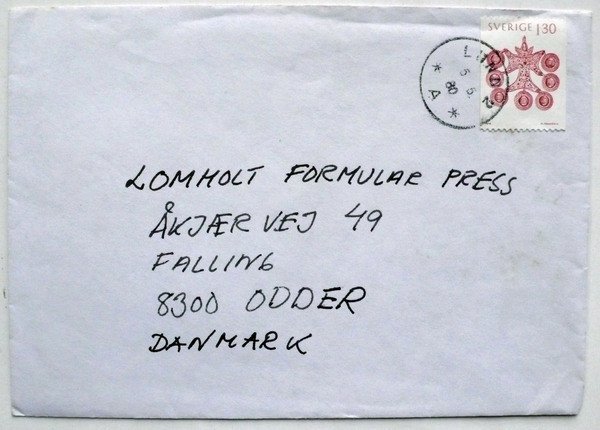 SVERIGE 130
LUND 2
5.5.
80
* A *
LOMHOLT FORMULAR PRESS
ÅKJÆRVEJ 49
FALLING
8300 ODDER
DANMARK